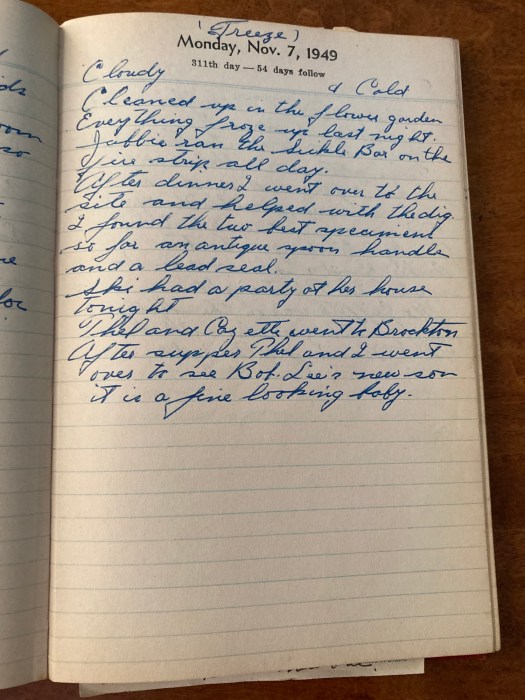 (Freeze)
Monday, Nov. 7, 1949
311th day — 54 days follow
Cloudy & Cold
Cleaned up in the flower garden
Everything froze up last night.
Jabbie ran the Sickle Bar on the
Fire strip all day.
After dinner I went over to the
site and helped with the dig.
I found the two best specimens
so far an antique spoon handle
and a lead seal.
Ski had a party at her house
tonight
Thel and Cozette went to Brockton
After supper Thel and I went
over to see Bob. Lee's new son
it is a fine looking baby.